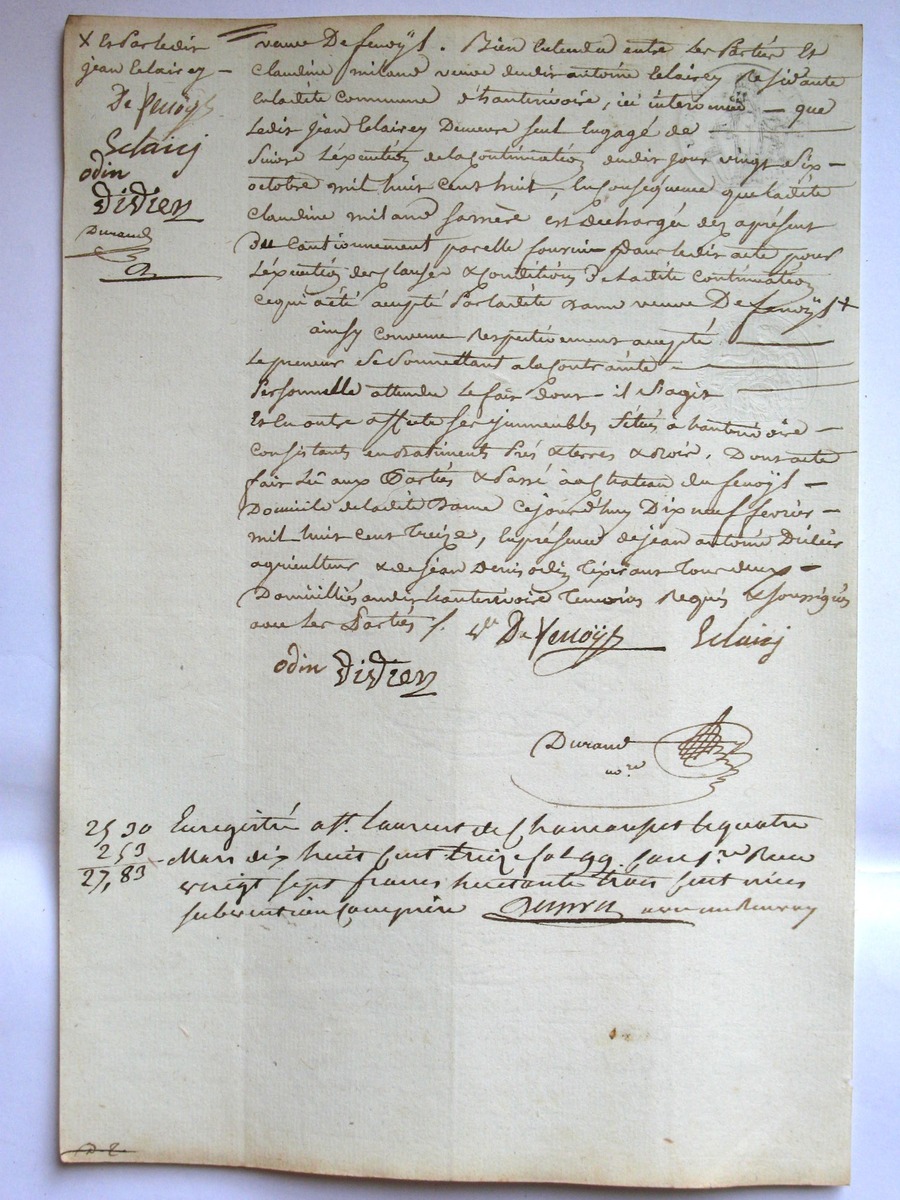 x Et par ledit
jean Eclairey
De fenoÿl
Eclairj
odin
Didier
Durand
veuve De fenoÿl. Bien entendu entre les Parties Et
Claudine miland veuve dudit antoine Eclairey Residante
en ladite Commune d'hauterivoire, ici intervenue — que
Ledit Jean Eclairey Demeure seul Engagé de
Suivre L'exécution de la Continuation dudit jour vingt six
octobre mil huit cent huit, En conséquence que ladite
Claudine miland sa mère est déchargée dès aprésent
Du Cautionnement par elle fourni dans ledit acte pour
L'éxécution des clauses & Conditions De ladite Continuation
Ce qui a été accepté Par ladite Dame veuve De fenoÿl x
ainsy convenu Respectivement accepté
Le preneur Se Soumettant a la Contrainte
Personnelle attendu Le fait dont il S'agit
Et En outre affecte ses immeubles Situés a hauterivoire
Consistants en Batiments Prés & terres & Bois. Dont acte
fait Lû aux Parties & Passé au Chateau du fenoÿl
Domicile de ladite Dame Cejourd'huy Dix neuf fevrier
mil huit cent treize, En présence de jean antoine Didier
agriculteur & de jean Denis odin Tixerant Tous deux
Domiciliés audit hauterivoire Temoins Requis & soussignés
avec Les Parties /. Ve De fenoÿl Eclairj
odin Didier
Durand
nore
25 30 Enregistré a St. Laurent de Chamousset le quatre
2 53 Mars dix huit cent treize fo 99. Case 1.re Reçu
27,83 vingt sept francs huitante trois centimes
subvention comprise